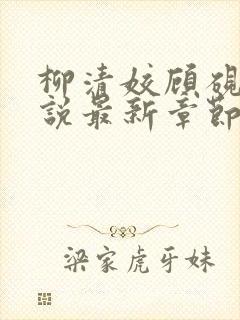 柳清姣顾砚
说最新章节
梁家虎牙妹